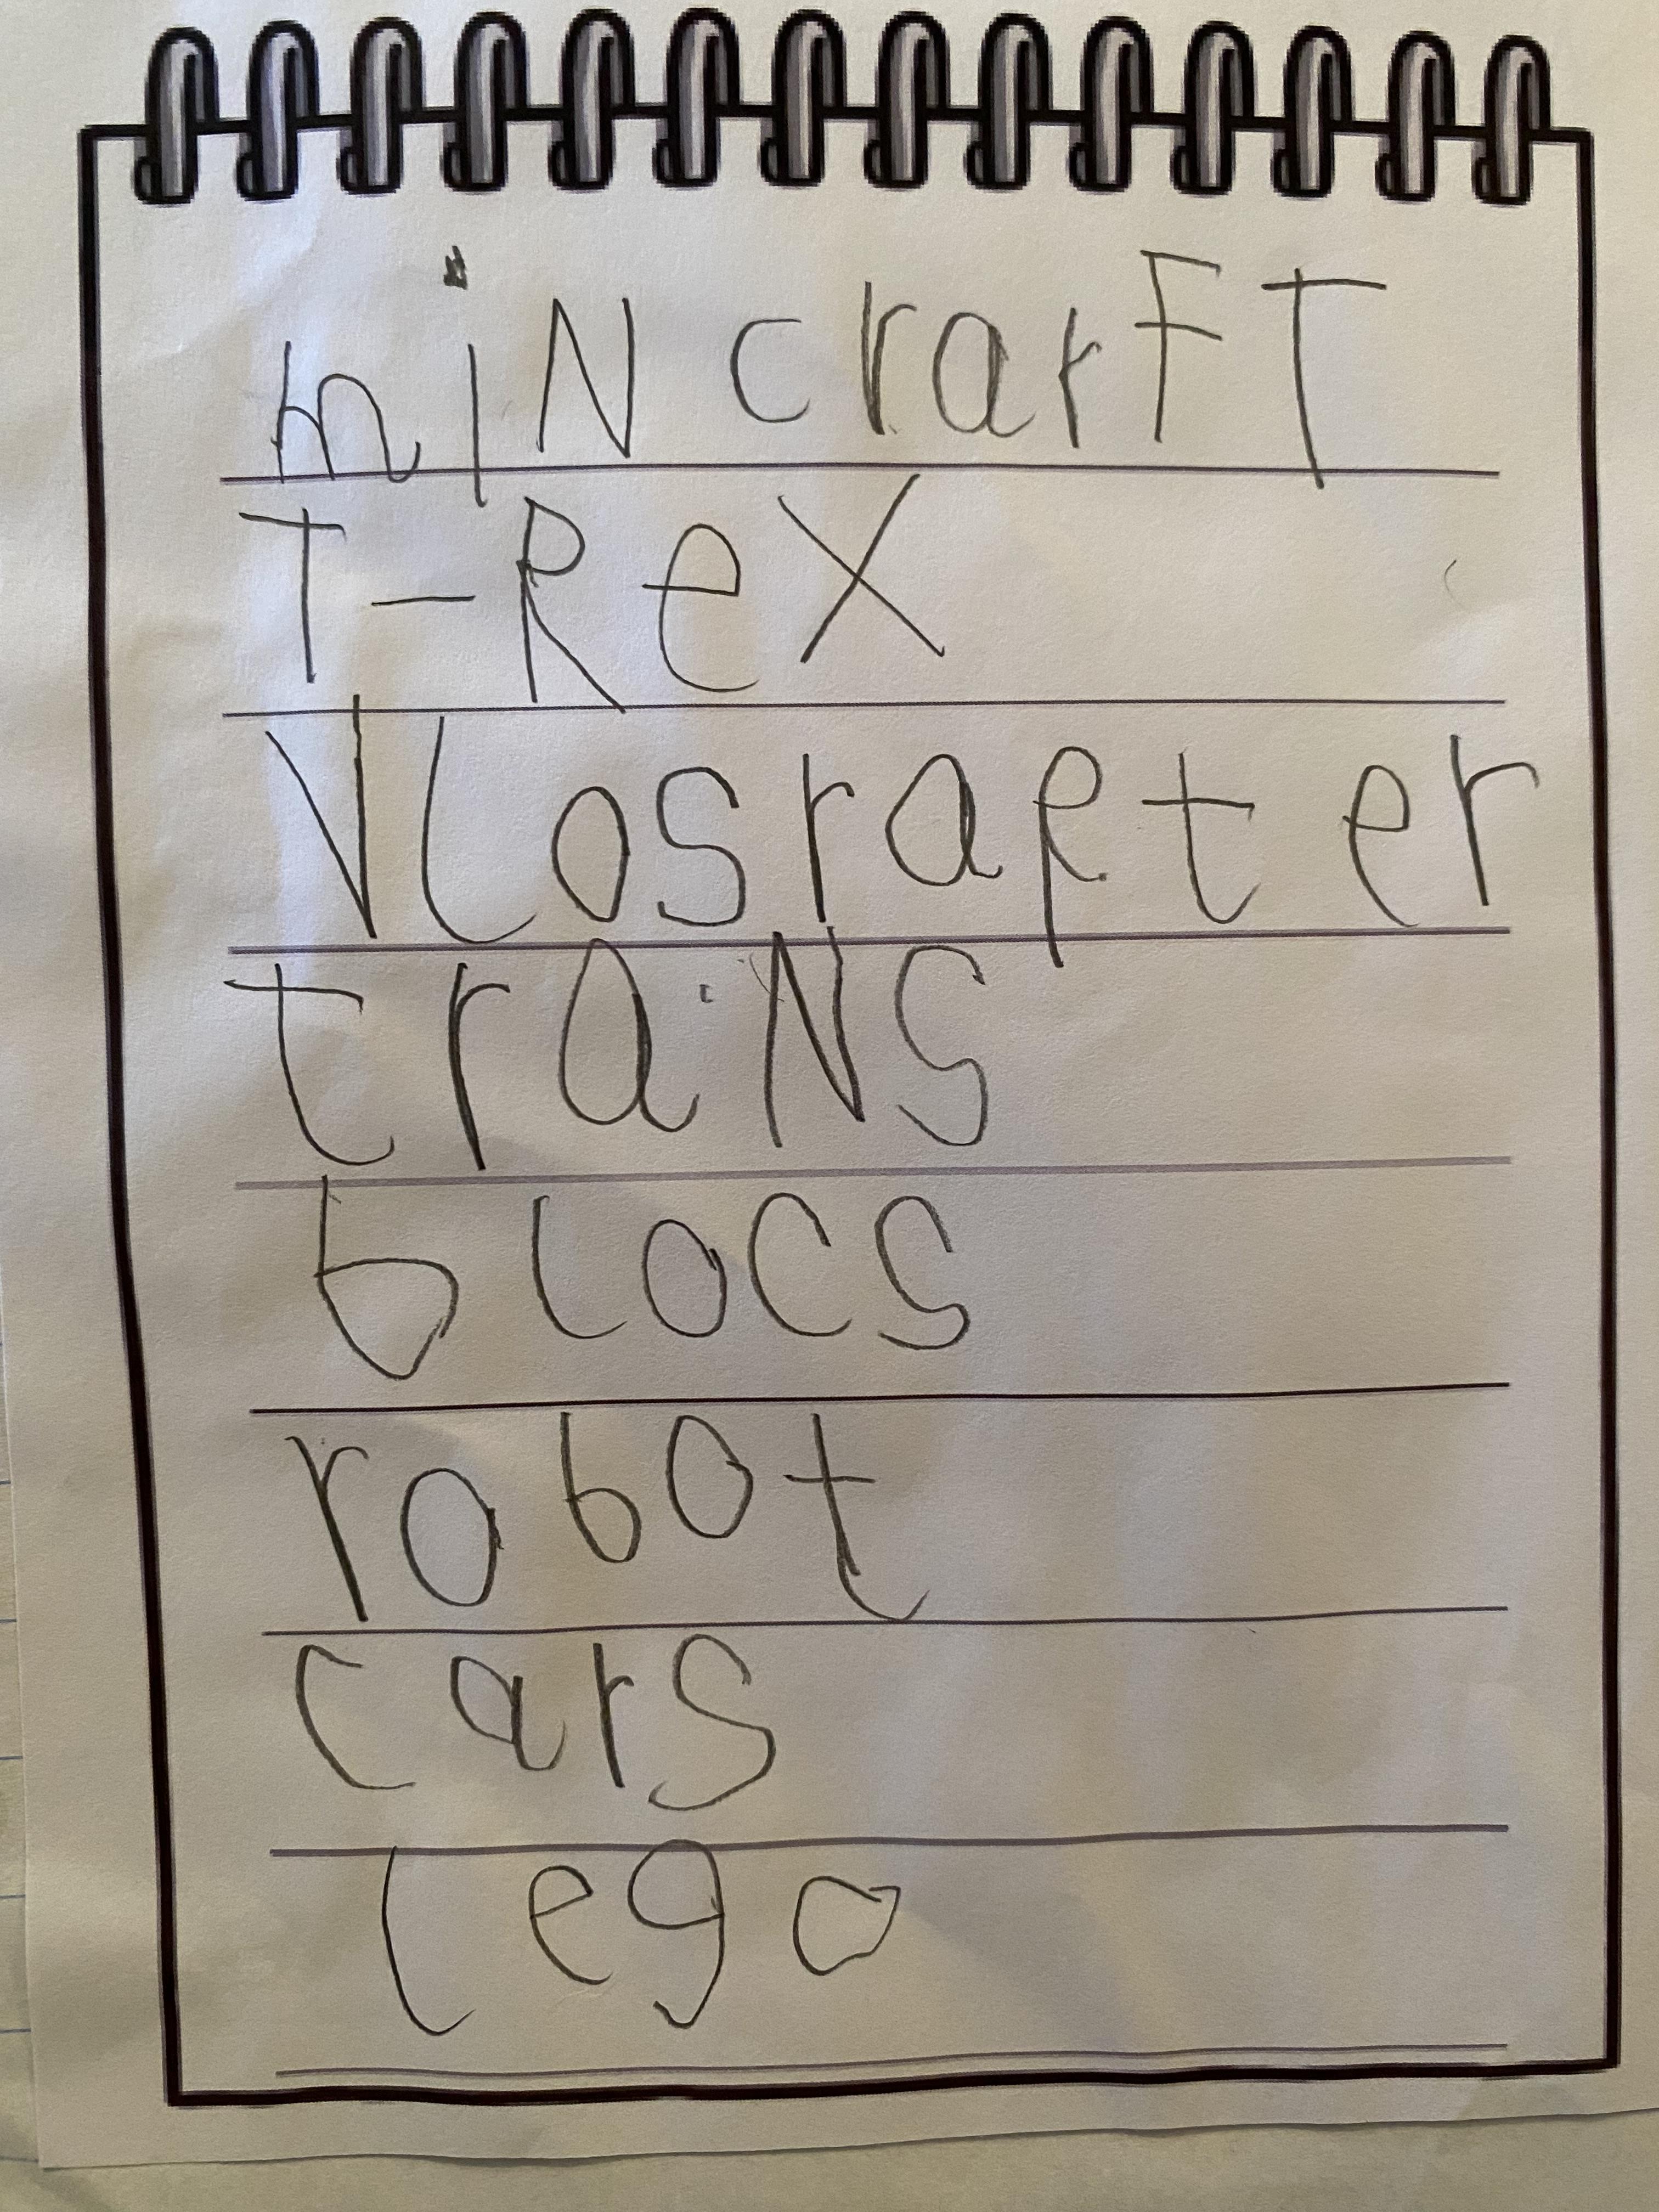 miN crarFT
T-ReX
Vlosrapter
traiNS
blocs
robot
cars
lego